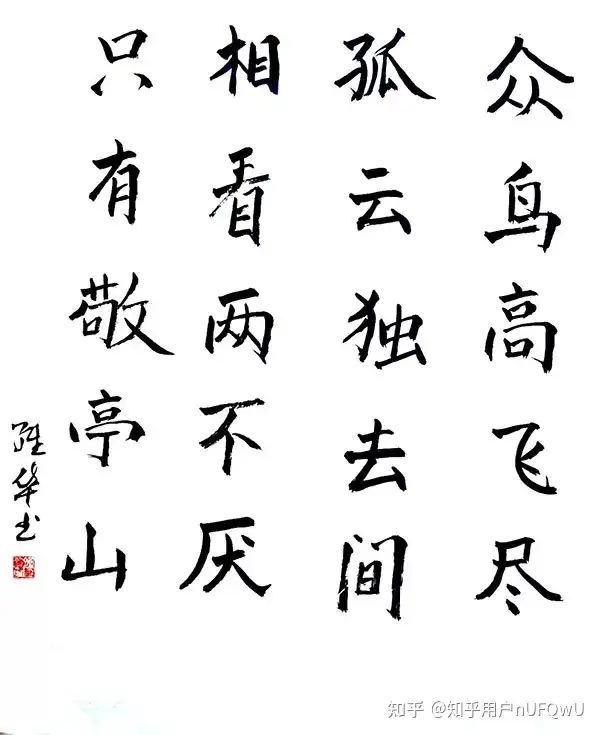 众鸟高飞尽
孤云独去间
相看两不厌
只有敬亭山
华书
知乎 @知乎用户nUFQwU